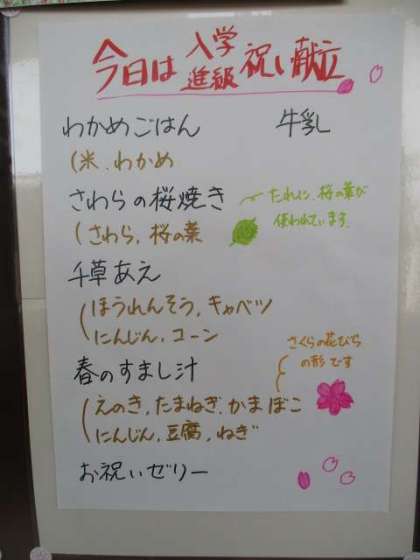 今日は入学進級祝い献立
わかめごはん 牛乳
(米、わかめ
さわらの桜焼き
たれに、桜の葉が
使われています。
(さわら、桜の葉
千草あえ
(ほうれんそう、キャベツ
にんじん、コーン
さくらの花びら
の形です
春のすまし汁
(えのき、たまねぎ、かまぼこ
にんじん、豆腐、ねぎ
お祝いゼリー